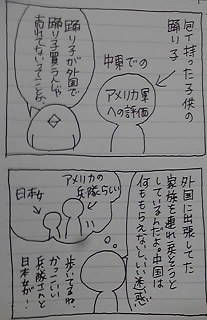 包丁持った子供の
踊り子
中東での
アメリカ軍
への評価
踊り子が外国で
踊り子買うんじゃ
売れてないってことか、
外国に出張してた
家族を連れ戻そうと
しているんだよ。中国は
何ももらえないしいい迷惑
アメリカの
兵隊らしい
日本女
歩いてるね、
かっこいい
兵隊さんと
日本女が…